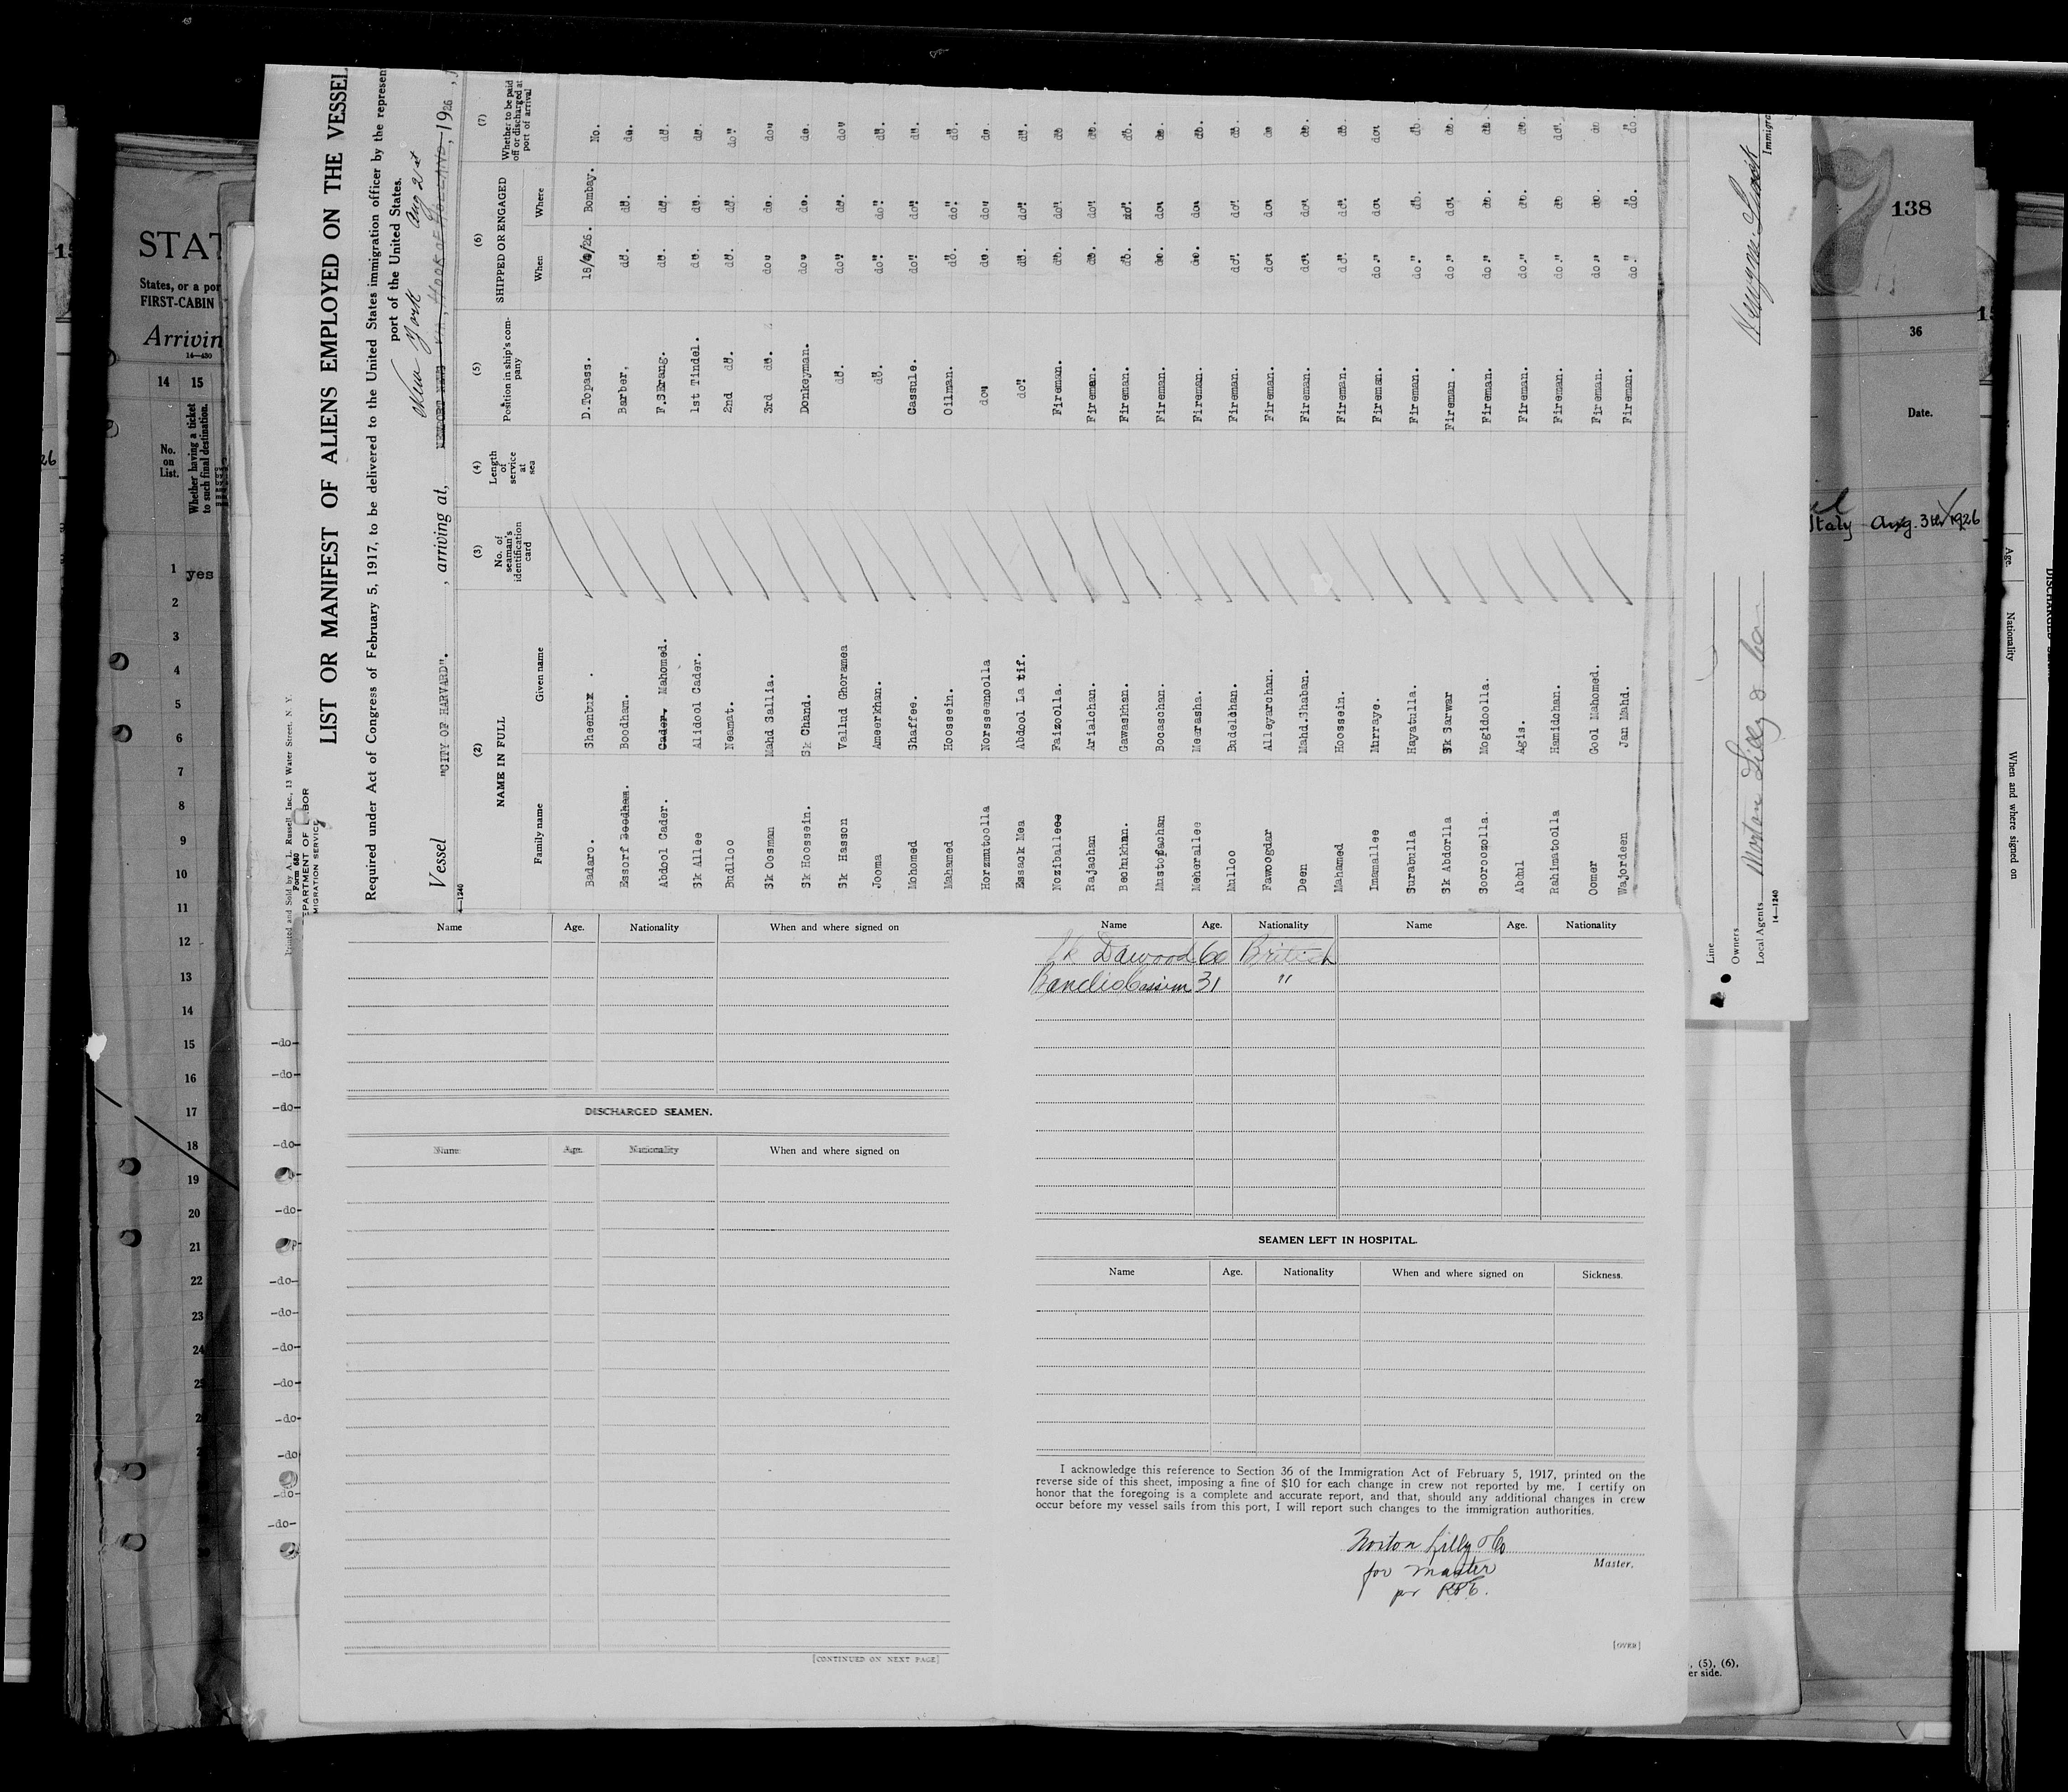 Printed and Sold by A. L. Russell, Inc., 13 Water Street, N. Y.
Form 680
DEPARTMENT OF LABOR
IMMIGRATION SERVICE
LIST OR MANIFEST OF ALIENS EMPLOYED ON THE VESSEL
Required under Act of Congress of February 5, 1917, to be delivered to the United States immigration officer by the represen
port of the United States.
New York Aug 21st
Vessel "CITY OF HARVARD". , arriving at, HOOK OF HOLLAND, 1926
14—1240
(2) (3) (4) (5) (6) (7)
NAME IN FULL No. of seaman's identification card Length of service at sea Position in ship's company SHIPPED OR ENGAGED Whether to be paid off or discharged at port of arrival
Family name Given name When Where
Badaro. Sheenbux . D.Topass. 18/ /26. Bombay. No.
Essorf Boodham. Boodham. Barber, do. do. do.
Abdool Cader. Cader. Mahomed. F.SErang. do. do. do.
Sk Allee Alidool Cader. 1st Tindel. do. do. do.
Budlloo Neamat. 2nd do. do. do. do"
Sk Oosman Mahd Sallia. 3rd do. do" do. do"
Sk Hoossein. Sk Chand. Donkeyman. do" do. do.
Sk Hasson Vallud Ghoramea do. do" do. do"
Jooma Ameerkhan. do. do" do" do.
Mohomed Shaffee. Cassule. do" do" do.
Mahamed Hoossein. Oilman. do. do" do.
Horzmutoolla Norsseenoolla do" do. do" do.
Essack Mea Abdool La tif. do" do. do" do.
Noziballeee Faizoolla. Fireman. do. do" do
Rajachan Arialchan. Fireman. do. do" do.
Bechukhan. Gawaskhan. Fireman. do. do" do.
Mustopachan Bocaschan. Fireman. do. do" do.
Meherallee Meerasha. Fireman. do. do" do.
Mulloo Budelchan. Fireman. do" do" do.
Fawoogdar Alleyarchan. Fireman. do" do" do
Deen Mahd.Shaban. Fireman. do" do" do.
Mahamed Hoossein. Fireman. do" do" do.
Imamallee Murraye. Fireman. do." do" do"
Surabulla Hayatulla. Fireman. do." do. do.
Sk Abdorlla Sk Sarwar Fireman . do." do" do.
Sooroozolla. Mogidoolla. Fireman. do." do. do.
Abdul Agis. Fireman. do." do. do.
Rahimatoolla Hamidchan. Fireman. do." do do"
Oomer Gool Mahomed. Fireman. do." do. do
Wajordeen Jan Mahd. Fireman. do." do. do.
Line
Owners
Local Agents Norton Lilly & Co
14—1240
Immigra
Name Age. Nationality When and where signed on
DISCHARGED SEAMEN.
Name Age. Nationality When and where signed on
[CONTINUED ON NEXT PAGE]
Name Age. Nationality Name Age. Nationality
Sk Dawood 60 British
31 "
SEAMEN LEFT IN HOSPITAL.
Name Age. Nationality When and where signed on Sickness.
I acknowledge this reference to Section 36 of the Immigration Act of February 5, 1917, printed on the
reverse side of this sheet, imposing a fine of $10 for each change in crew not reported by me. I certify on
honor that the foregoing is a complete and accurate report, and that, should any additional changes in crew
occur before my vessel sails from this port, I will report such changes to the immigration authorities.
Norton Lilly & Co
Master.
for Master
per
[OVER]
STAT
States, or a por
FIRST-CABIN
Arrivin
14—430
14 15
No. on List.
Whether having a ticket to such final destination.
1 yes
2
3
4
5
6
7
8
9
10
11
12
13
14
15
16
17
18
19
20
21
22
23
24
-do-
-do-
-do-
-do-
-do-
-do-
-do-
-do-
-do-
-do-
-do-
-do-
-do-
138
36
Date.
Italy Aug. 3th 1926
, (5), (6),
er side.
Age.
Nationality
When and where signed on